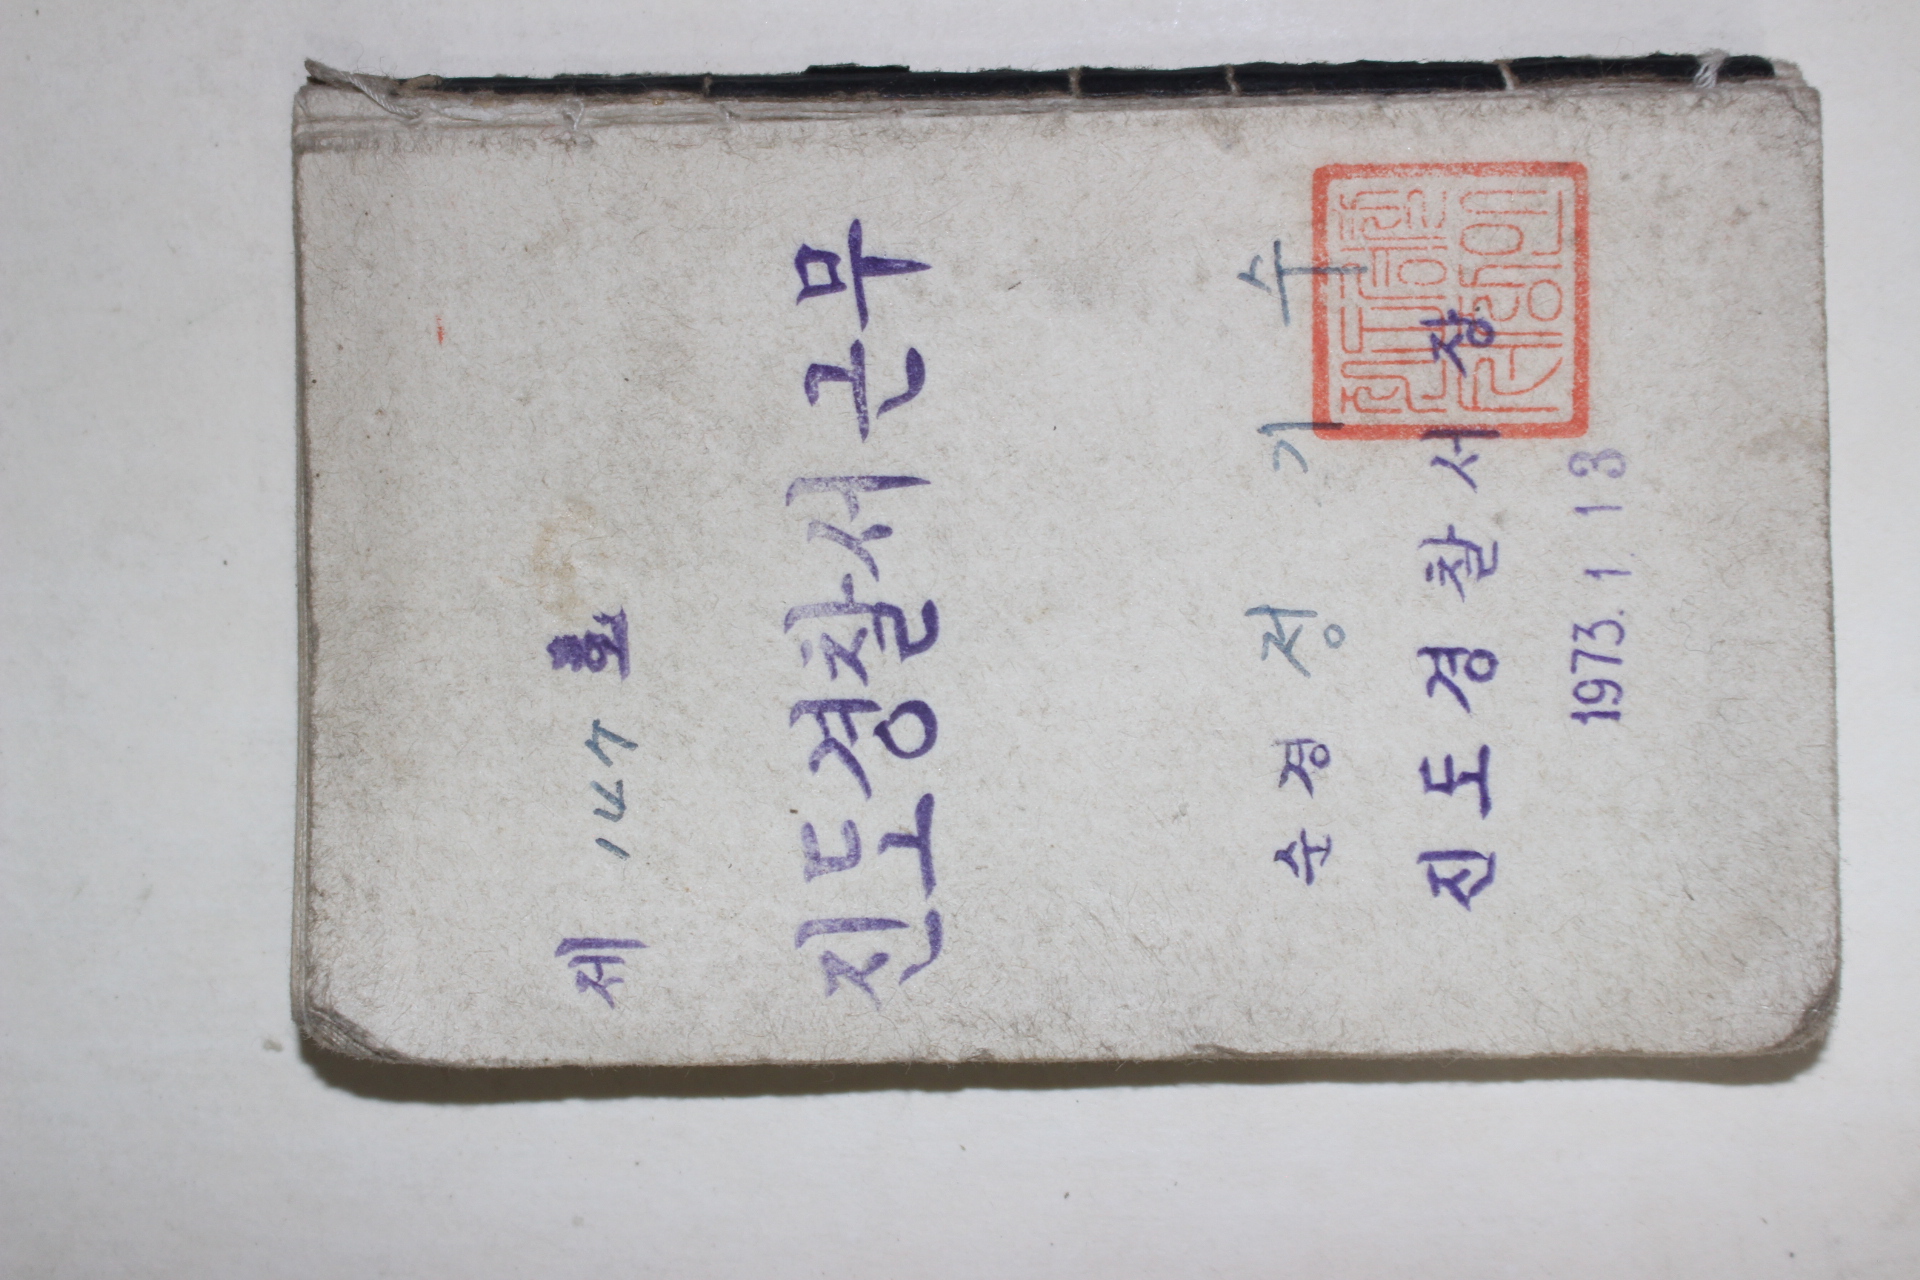 제 147 호
진도경찰서 근무
순경 정 기 수
진도경찰서장
1973. 1. 13